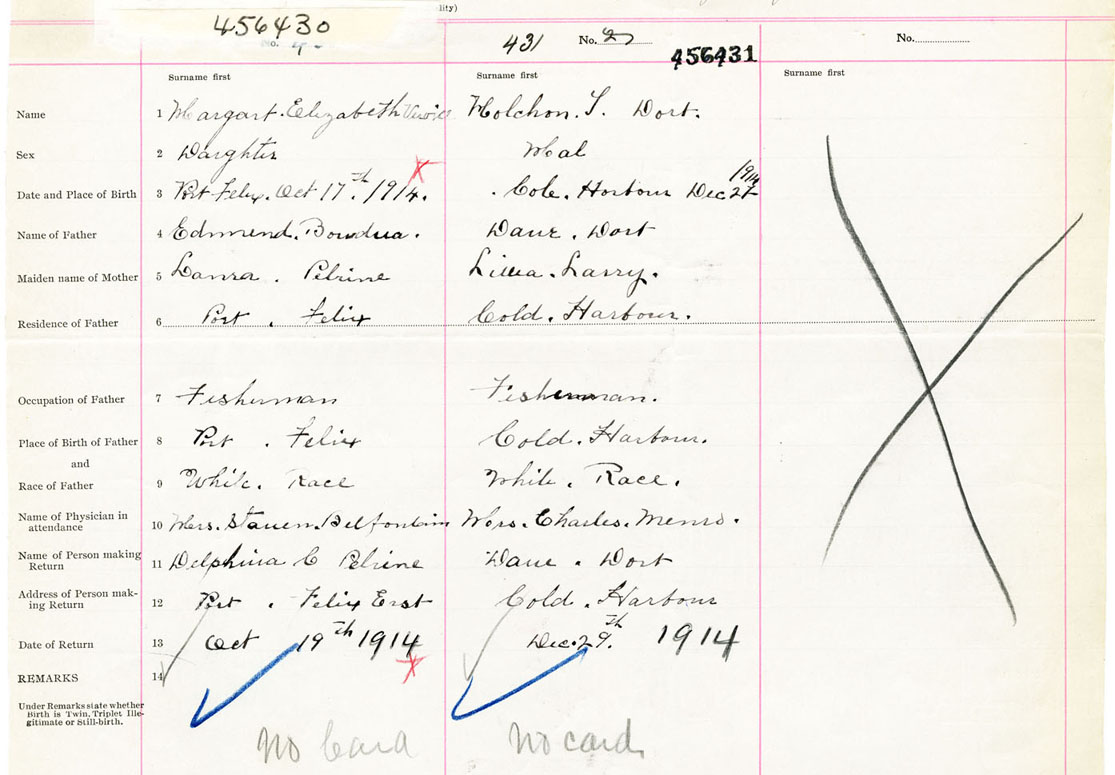 lity)
456430
431 No. 2
456431
No.
Surname first Surname first Surname first
Name 1 Margart. Elizabeth Holchon. S. Dort.
Sex 2 Darghter Mal
1914
Date and Place of Birth 3 Port Felix. Oct 17th. 1914. Cole. Horbour Dec 27
Name of Father 4 Edmund. Boudua. Dane. Dort
Maiden name of Mother 5 Lanra. Pelrine Larry.
Residence of Father 6 Port. Felix Cold. Harbour.
Occupation of Father 7 Fisherman Fisherman.
Place of Birth of Father 8 Port. Felix Cold. Harbour.
and
Race of Father 9 White. Race White. Race.
Name of Physician in
attendance 10 Mrs. Mrs. Charles. Menro.
Name of Person making
Return 11 Delphina C Pelrine Dane. Dort
Address of Person mak-
ing Return 12 Port. Felix East Cold. Harbour
Date of Return 13 Oct 19th 1914 Dec. 29th. 1914
REMARKS 14
Under Remarks state whether
Birth is Twin, Triplet Ille-
gitimate or Still-birth.
No Card No card